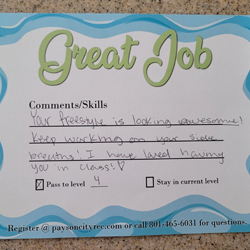 Great Job
Comments/Skills
Your freestyle is looking awesome!
Keep working on your side
breaths! I have loved having
you in class!♡
☑ Pass to level 4
☐ Stay in current level
Register @ paysoncityrec.com or call 801-465-6031 for questions.